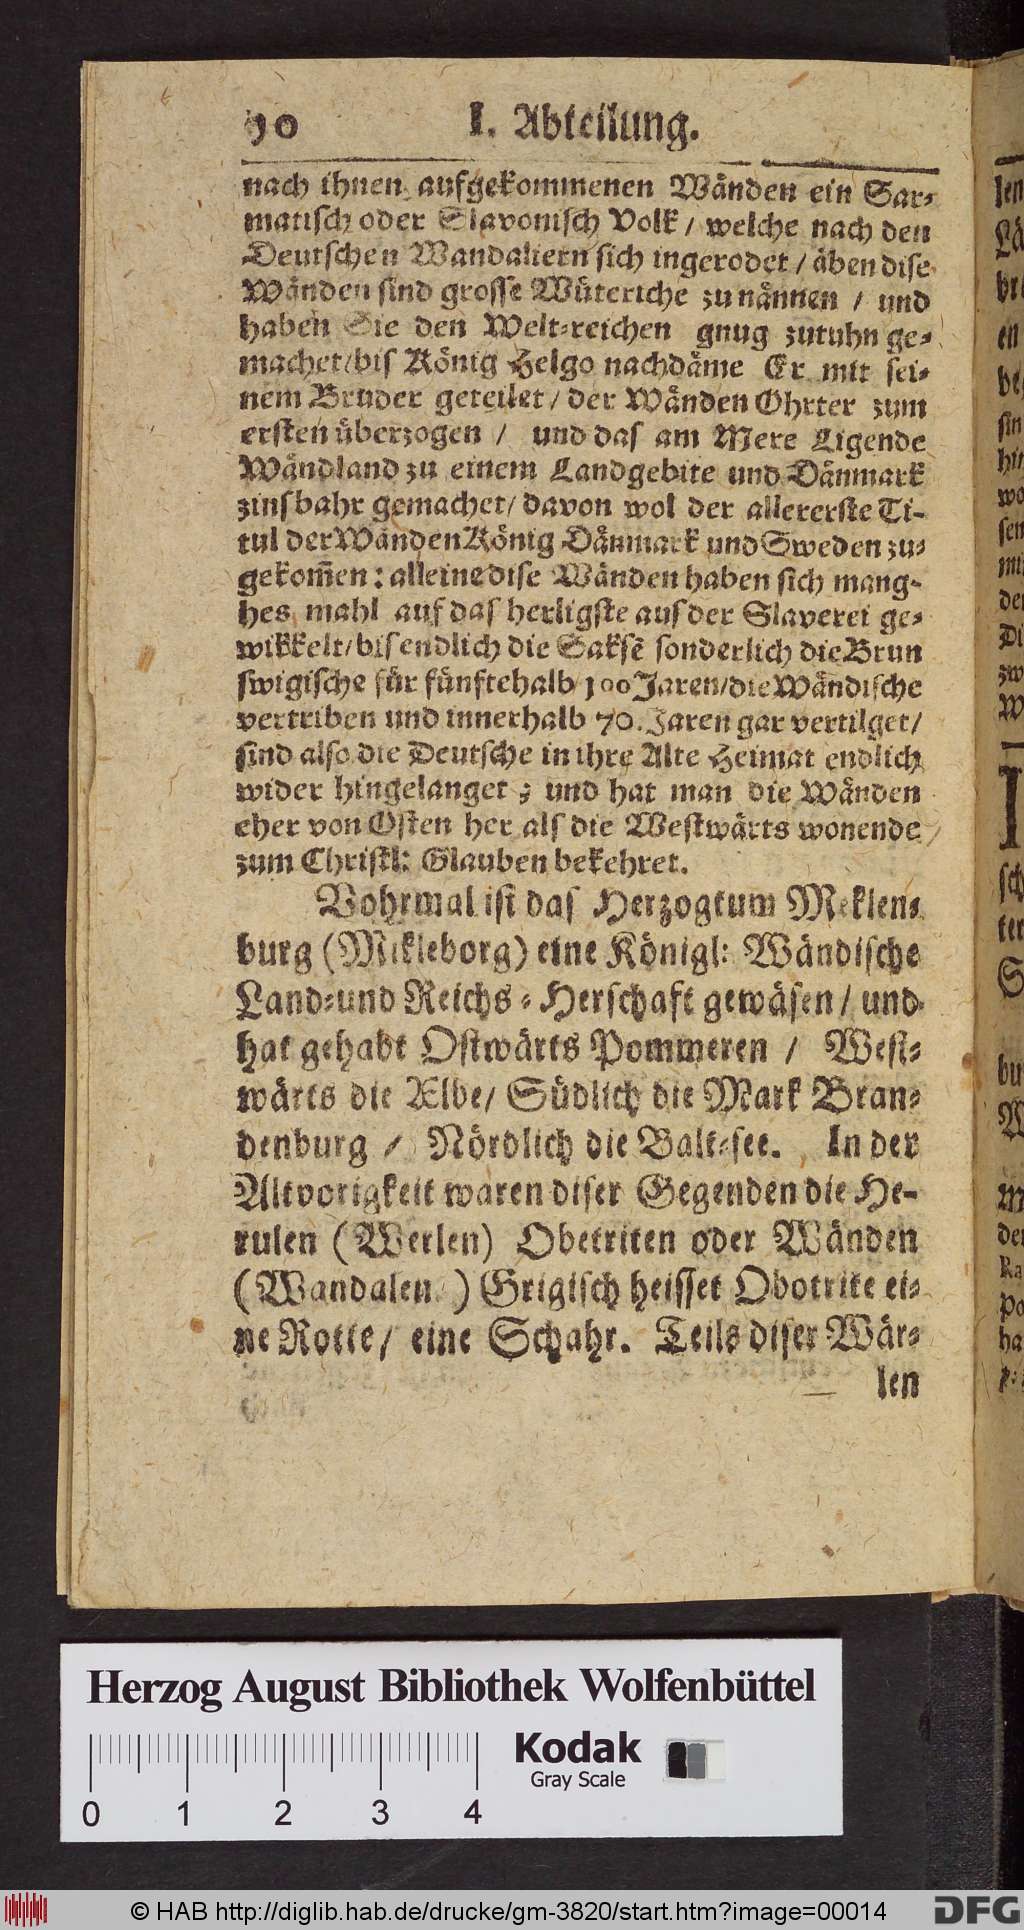 10 I. Abteilung.
nach ihnen aufgekommenen Wänden ein Sar⸗
matisch oder Slavonisch Volk / welche nach den
Deutschen Wandaliern sich ingerodet / äben dise
Wänden sind grosse Wüteriche zu nännen / und
haben Sie den Welt⸗reichen gnug zutuhn ge⸗
machet / bis König Helgo nachdäme Er mit sei⸗
nem Bruder geteilet / der Wänden Ohrter zum
ersten überzogen / und das am Mere Ligende
Wändland zu einem Landgebite und Dänmark
zinsbahr gemachet / davon wol der allererste Ti-
tul der Wänden König Dänmark und Sweden zu⸗
gekom̃en : alleine dise Wänden haben sich mang-
hes mahl auf das herligste aus der Slaverei ge⸗
wikkelt / bis endlich die Saksẽ sonderlich die Brun
swigische für fünftehalb 100 Jaren / die Wändische
vertriben und innerhalb 70. Jaren gar vertilget /
sind also die Deutsche in ihre Alte Heimat endlich
wider hingelanget ; und hat man die Wänden
eher von Osten her als die Westwärts wonende
zum Christl: Glauben bekehret.
Vohrmal ist das Herzogtum Meklen⸗
burg (Mikleborg) eine Königl: Wändische
Land⸗und Reichs⸗Herschaft gewäsen / und
hat gehabt Ostwärts Pommeren / West⸗
wärts die Ælbe / Südlich die Mark Bran⸗
denburg / Nördlich die Balt⸗see. In der
Altvorigkeit waren diser Gegenden die He-
rulen (Werlen) Obetriten oder Wänden
(Wandalen) Grigisch heisset Obotrite ei⸗
ne Rotte / eine Schahr. Teils diser Wär⸗
len
Herzog August Bibliothek Wolfenbüttel
Kodak
Gray Scale
0 1 2 3 4
© HAB http://diglib.hab.de/drucke/gm-3820/start.htm?image=00014
DFG